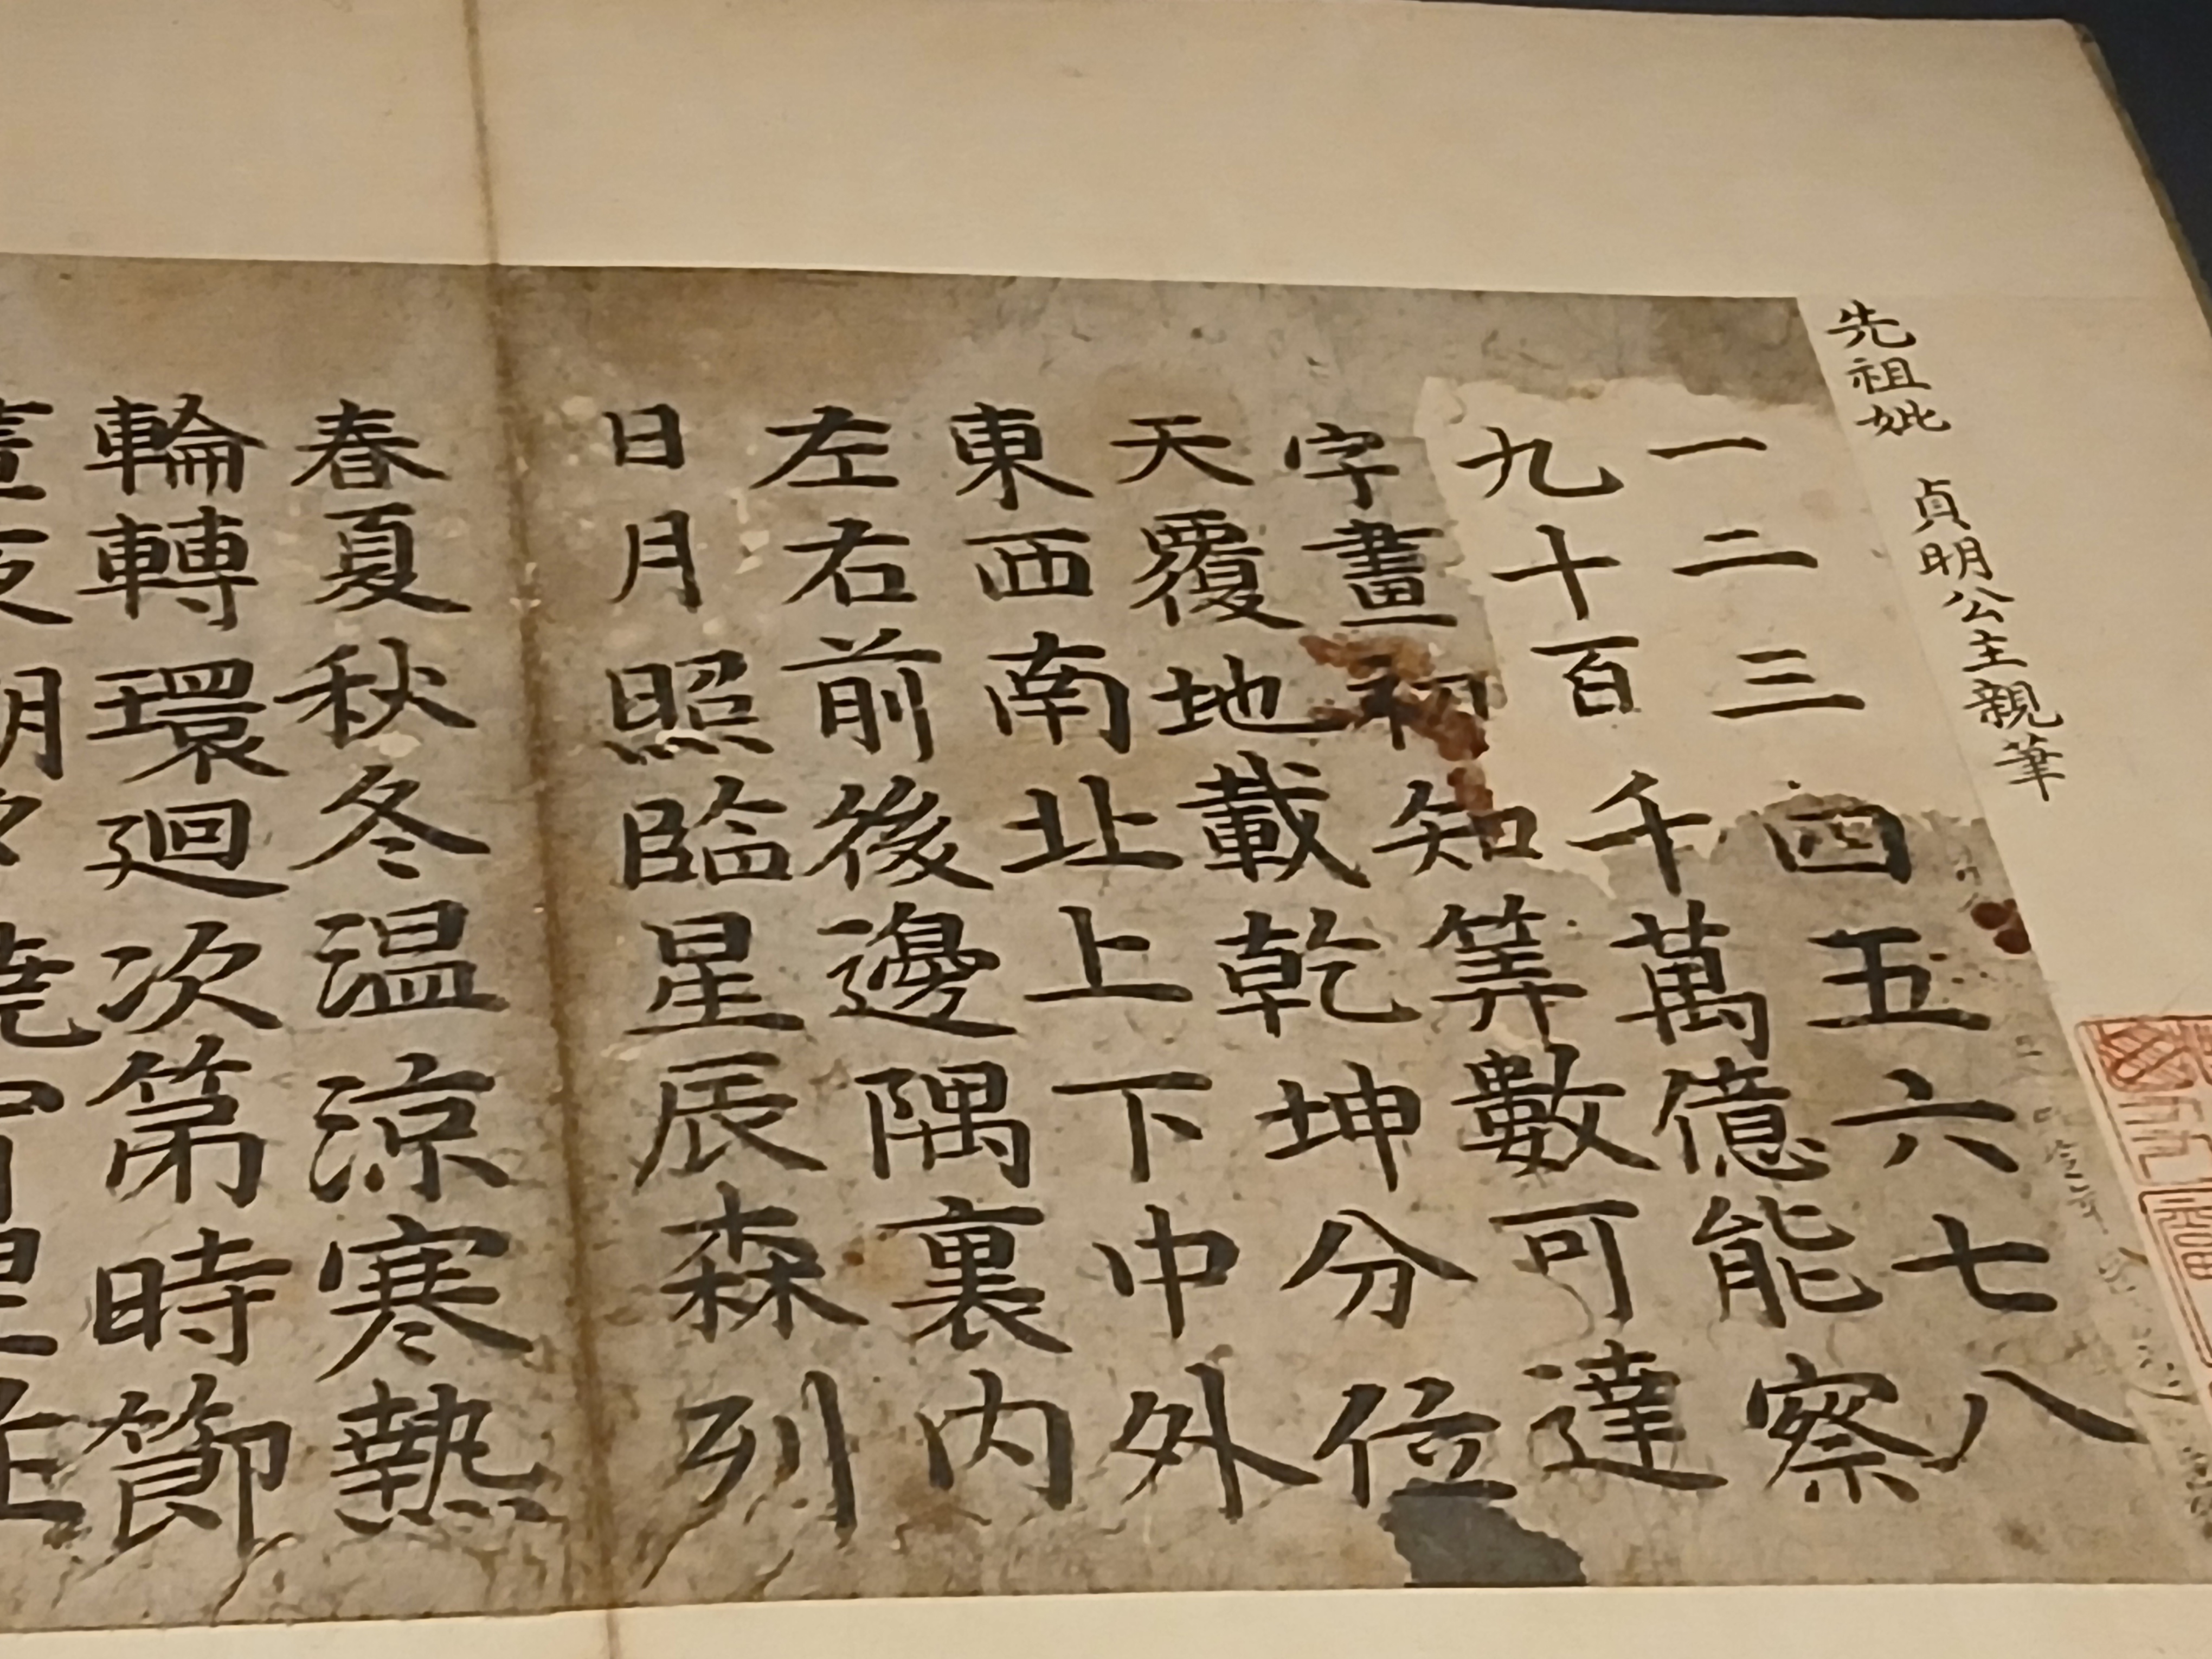 先祖妣 貞明公主親筆
一二三四五六七八
九十百千萬億能察
字畫初知筭數可達
天覆地載乾坤分位
東西南北上下中外
左右前後邊隅裏内
日月照臨星辰森列
春夏秋冬温涼寒熱
輪轉環廻次第時節